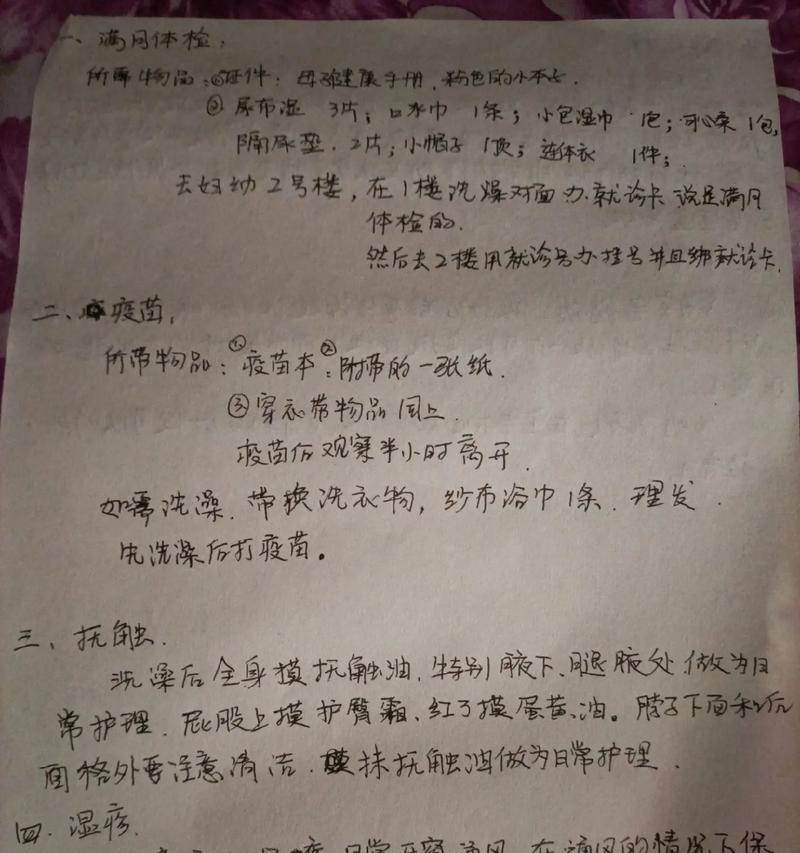 一、满月体检：
所带物品：①证件：母子健康手册，粉色的小本子.
② 尿布湿 3片；口水巾 1条；小包湿巾 1包；可心柔1包,
隔尿垫. 2片；小帽子 1顶；连体衣 1件；
去妇幼2号楼，在1楼洗澡对面办就诊卡 说是满月
体检的.
然后去2楼用就诊号办挂号并且绑就诊卡.
二、疫苗，
所带物品：①疫苗本②：附带的一张纸.
③穿衣带物品同上.
疫苗后观察半小时离开.
如需洗澡. 带换洗衣物，纱布浴巾1条. 理发.
先洗澡后打疫苗。
三、抚触.
洗澡后全身摸抚触油，特别腋下、腿腋处做为日
常护理. 屁股上摸护臀霜、红了摸蛋黄油。脖子下面和
面格外要注意清洁. 抹抚触油做为日常护理.
四. 湿疹.
日常 通风. 在通风的情况下保